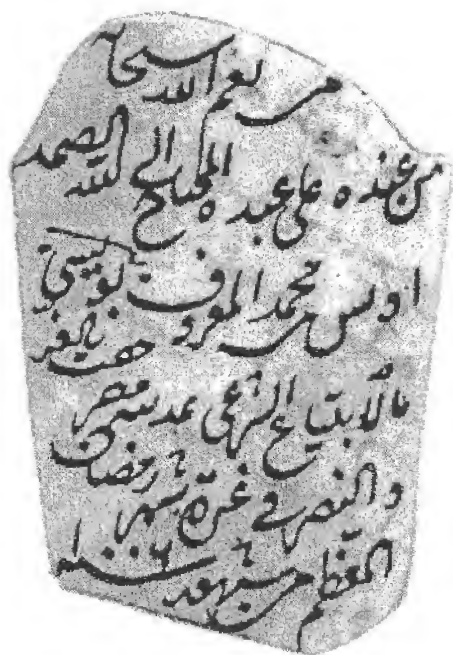 من نعم الله سبحانه
من عنده على عبده المحتاج الى الله الصمد
اويس بن محمد المعروف بويسي
الشرعي مصر
والنصر في غرة شهر رمضان
المعظم من شهور سنة